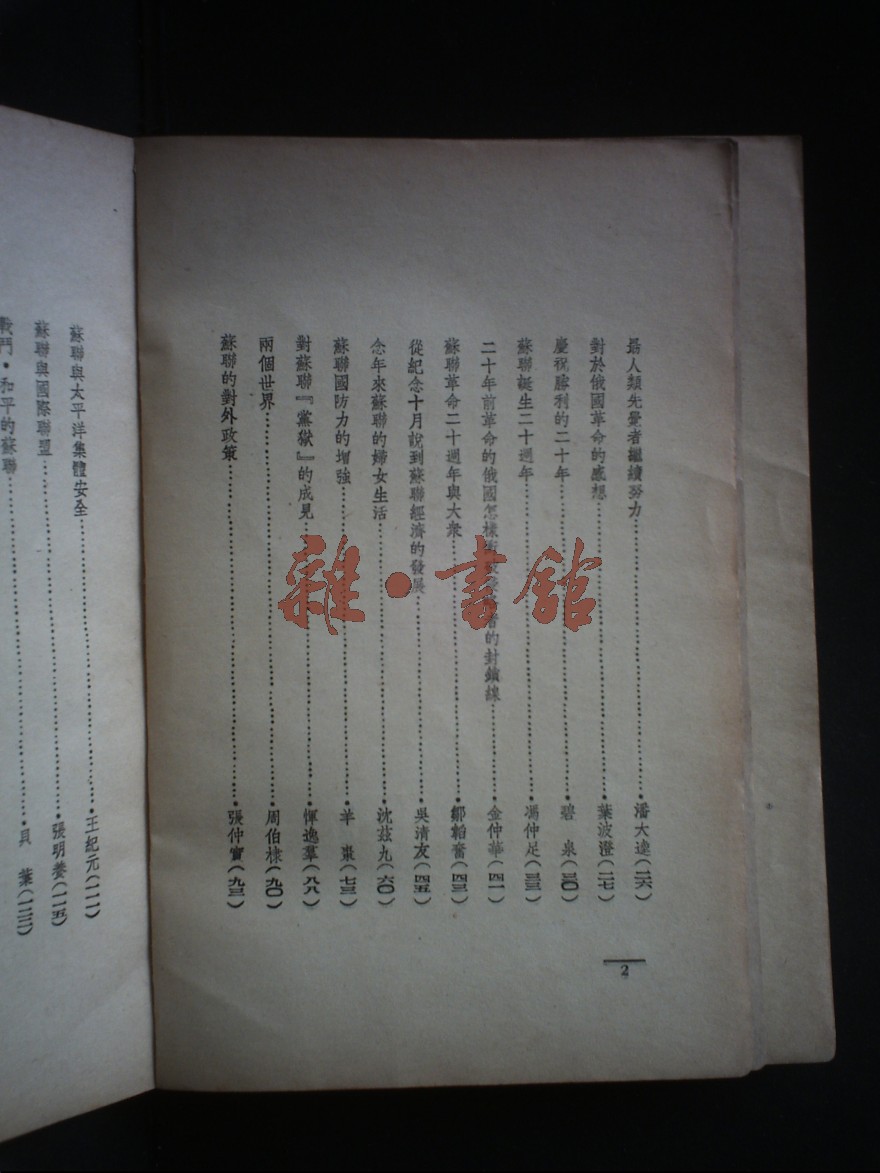 爲人類先覺者繼續努力……潘大逵(二六)
對於俄國革命的感想……葉波澄(二七)
慶祝勝利的二十年……碧泉(三〇)
蘇聯誕生二十週年……馮仲足(三三)
二十年前革命的俄國怎樣 的封鎖線……金仲華(四一)
蘇聯革命二十週年與大衆……鄒韜奮(四三)
從紀念十月說到蘇聯經濟的發展……吳清友(四五)
念年來蘇聯的婦女生活……沈茲九(六〇)
蘇聯國防力的增強……羊棗(七三)
對蘇聯『黨獄』的成見……惲逸羣(八八)
兩個世界……周伯棣(九〇)
蘇聯的對外政策……張仲實(九三)
2
蘇聯與太平洋集體安全……王紀元(一一一)
蘇聯與國際聯盟……張明養(一一五)
戰鬥・和平的蘇聯……貝葉(一二二)
雜・書館